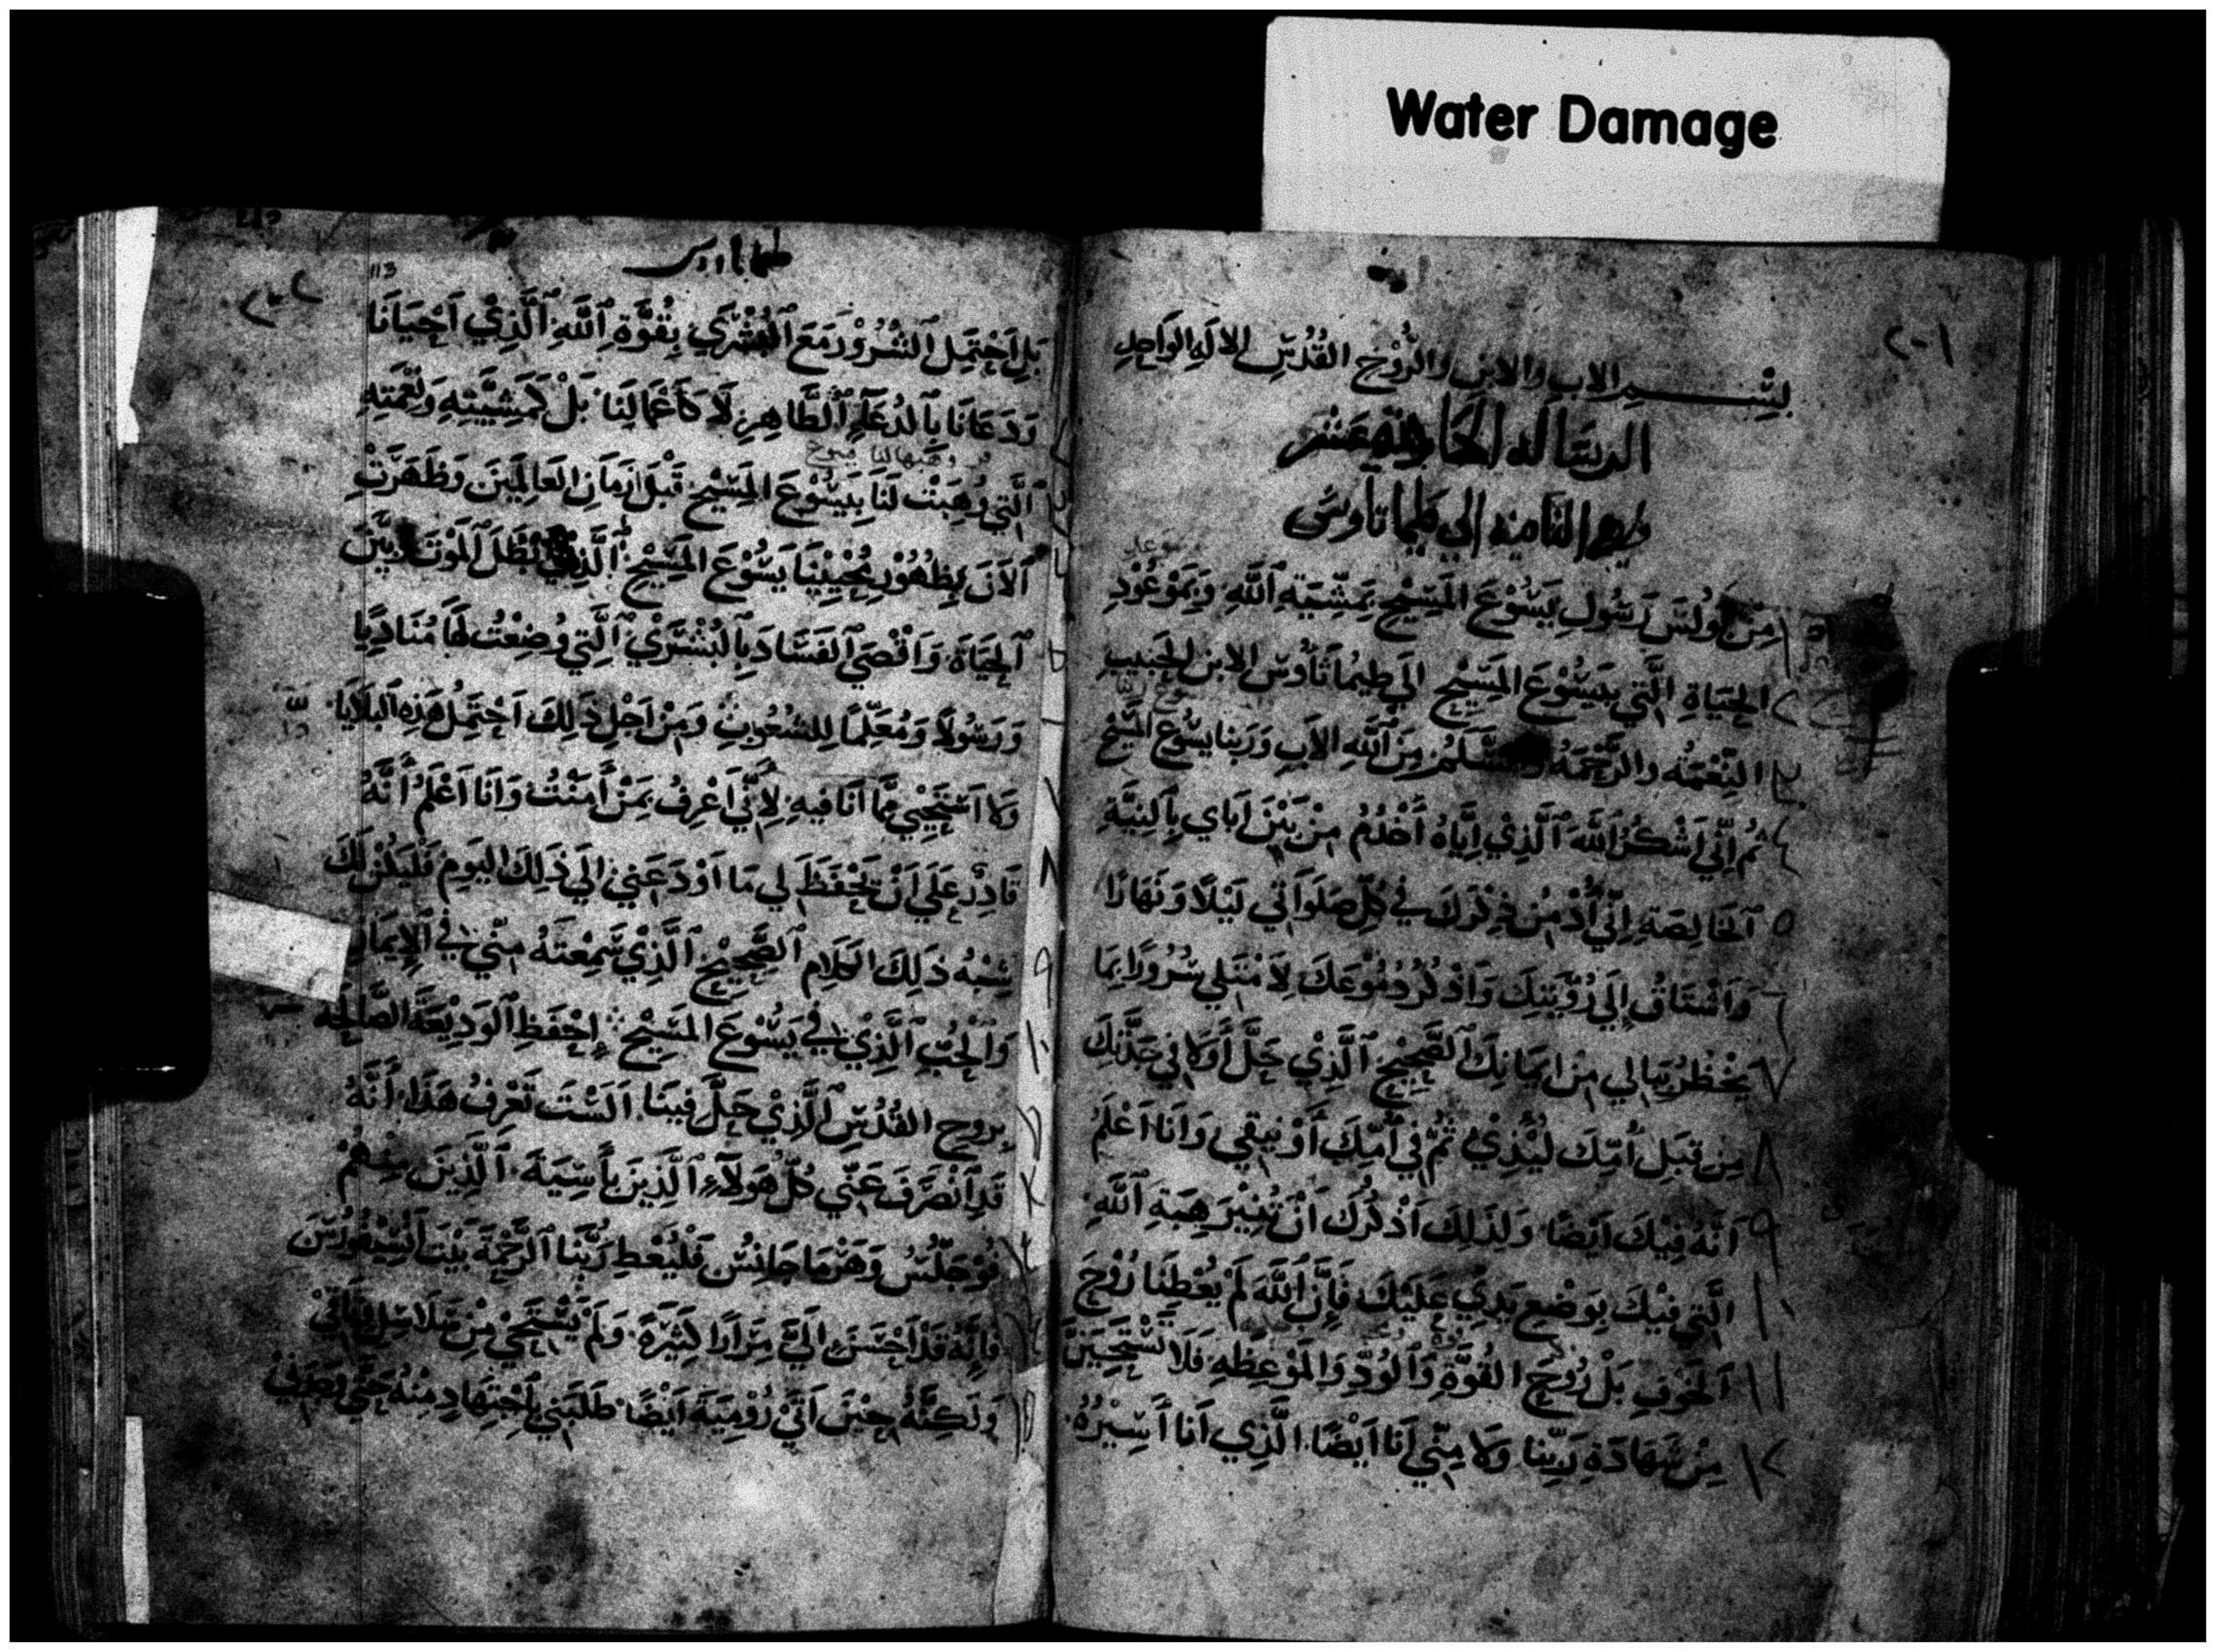 Water Damage
٢٠١
بِسْمِ الاب والابن والرُّوْحِ القُدُسِ الالَهِ الوَاحِدِ
الرسَاله الحَاديه عَشر
وهي الثامنه الي طيماتاوس
١ مِنْ بُولُسَ رَسُولِ يَسُوْعَ المَسِيْحِ بِمَشِيَّةِ ٱللَّهِ وَبِمَوْعُوْدِ
٢ الحَيَاةِ الَّتِي بِيَسُوْعَ المَسِيْحِ الَى طِيمُاثَاُوسَ الابنِ الحَبِيبِ
٣ النِّعْمَةُ والرَّحْمَةُ والسَّلَمُ مِنَ ٱللَّهِ الاَبِ وَرَبِنا يسُوع المَسِيْح
٤ ثُم اِنِّي اَشْكُرُ ٱللَّهَ ٱلَّذِيْ اِيَّاهُ أَخْدُمُ مِنْ بَيْنِ اَبَاي بِٱلنِيَّةِ
٥ ٱلخَالِصَةِ اِنِّي أُدْمِنُ ذِكْرَكَ فِي كُلِّ صَلَوَاتِي لَيْلًا وَنَهَارًا
٦ وَاَشْتَاقُ اِلَى رُؤْيَتِكَ وَاَذْكُرُ دُمُوْعَكَ لِاَمْتَلِي سُرُورًا بِمَا
٧ يَخْطُرُ بِبَالِي مِنْ اِيمَانِكَ ٱلصَّحِيْحِ ٱلَّذِيْ حَلَّ أَوَّلا فِي جَدَّتِكَ
٨ مِن قِبَلِ اُمِّكَ لَيْذِيْ ثُمَّ فِي اُمِّكَ أَوْنِيقِي وَاَنَا اَعْلَمُ
٩ اَنَّهُ فِيْكَ اَيْضًا وَلِذَلِكَ اَذْكُرُكَ اَنْ تُثِيْرَ هِبَةِ ٱللَّهِ
١٠ الَّتِي فِيْكَ بِوَضْعِ يَدِي عَلَيْكَ فَاِنَّ ٱللَّهَ لَمْ يُعْطِنَا رُوْحَ
١١ ٱلخَوفِ بَلْ رُوحَ القُوَّةِ وَٱلوُدِّ وَالمَوْعِظَهِ فَلَا تَسْتَحِيَنَّ
١٢ مِنْ شَهَادَةِ رَبِّنَا وَلا مِنِّي اَنَا اَيْضًا الَّذِي اَنَا اَسِيْرُهُ
113
٢٠٢
بَلِ اَحْتَمِلِ ٱلشُرُوْرَ مَعَ ٱلبُشْرَي بِقُوَّةِ ٱللَّهِ ٱلَّذِيْ اَحْيَانَا
وَدَعَانَا بِٱلدُعَآءِ ٱلطَّاهِرِ لَا كَأَعْمَالِنَا بَلْ كَمَشِيَّتِهِ وَنِعْمَتِهِ
ٱلَّتِي وُهِبَتْ لَنَا بِيَسُوْعَ المَسِيْحِ قَبْلَ زَمَانِ العَالَمِيْنَ وَظَهَرَتْ
ٱلاَنَ بِظُهُوْرِ مُحْيِيْنَا يَسُوْعَ المَسِيْحِ ٱلَّذِي بَطَلَ ٱلمَوْتَ وَبَيَّنَ
ٱلحَيَاةَ وَاَقْصَى ٱلفَسَادَ بِٱلبُشْرَيْ ٱلَّتِي وُضِعْتُ لَهَا مُنَادِيًا
وَرَسُولاً وَمُعَلِّمًا لِلشُعُوبِ وَمِنْ اَجْلِ ذَلِكَ اَحْتَمِلُ هَذِهِ ٱلبَلَايَا
وَلا اَسْتَحِيْي مِمَّا اَنَا فِيهِ لِاَنِّي اَعْرِفُ بِمَنْ اَمَنْتُ وَاَنَا اَعْلَمُ أَنَّهُ
قَادِرٌ عَلَي اَنْ يَحْفَظَ لِي مَا اَوْدَعَنِي اِلَي ذَلِكَ اليَومِ فَلْيَكُنْ لَكَ
شِبْهُ ذَلِكَ الكَلَامِ ٱلصَّحِيْحِ ٱلَّذِيْ سَمِعْتَهُ مِنِّي فِي ٱلاِيمَانِ
وَٱلحُبِّ ٱلَّذِيْ فِي يَسُوْعَ المَسِيْحِ اِحْفَظِ ٱلوَدِيْعَةَ الصَّالِحَه
بِرُوحِ القُدُسِ ٱلَّذِيْ حَلَّ فِينَا اَلَسْتَ تَعْرِفُ هَذَا أَنَّهُ
قَدِ ٱنْصَرَفَ عَنِّي كُلُّ هَولَآءِ ٱلَّذِيَن بأَسِيَةَ ٱلَّذِيَن مِنهُمْ
فُوْجَلُّسُ وَهَرْمَاجَانِسُ فَلْيُعْطِ رَبُّنَا ٱلرَّحْمَةَ بَيْتَ اَنْسِيْفُورُسَ
فَاِنَّهُ قَدْ اَحْسَنَ اِلَيَّ مِرَارًا كَثِيْرَةً وَلَمْ يَسْتَحِيْ مِنْ سَلَاسِلِ وِثَاقِيْ
وَلَكِنَّهُ حِيْنَ اَتَى رُوْمِيَةَ اَيْضًا طَلَبَنِي بِاَجْتِهَادٍ مِنْهُ حَتَّي وَجَدَنِيْ